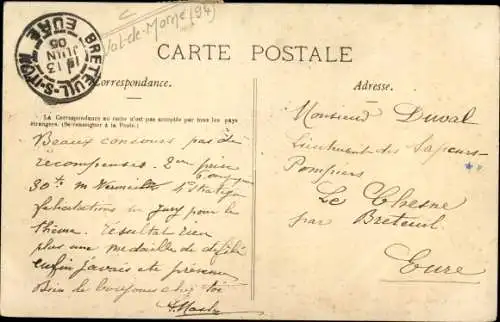 Val-de-Marne (94)
BRETEUIL-S-ITON
13
JUIN
05
EURE
CARTE POSTALE
Correspondance.
Adresse.
La Correspondance au recto n'est pas acceptée par tous les pays
étrangers. (Se renseigner à la Poste.)
Beaux concours pas de
récompenses. 2eme prise
30
félicitations du jury pour le
thème. résultat rien
plus une médaille de défilé
enfin j'avais été prévenu
Bien le bonjour chez toi
Monsieur Duval
Lieutenant des Sapeurs-
Pompiers
Le Chesne
par Breteuil
Eure